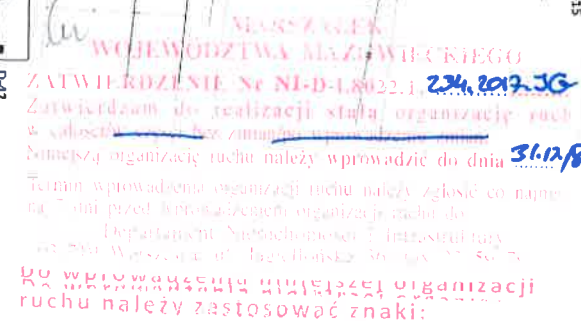 MARSZAŁEK
WOJEWÓDZTWA MAZOWIECKIEGO
ZATWIERDZENIE Nr NI-D-I.8022.1. 234.2017.JG
Zatwierdzam do realizacji stałą organizację ruch
w całości bez zmian
Niniejszą organizację ruchu należy wprowadzić do dnia 31.12.18
Termin wprowadzenia organizacji ruchu należy zgłosić co najmn
na 7 dni przed wprowadzeniem organizacji ruchu do
Departament Nieruchomości i Infrastruktury
Warszawa, ul. Jagiellońska
Do wprowadzenia niniejszej organizacji
ruchu należy zastosować znaki:
D-42
15